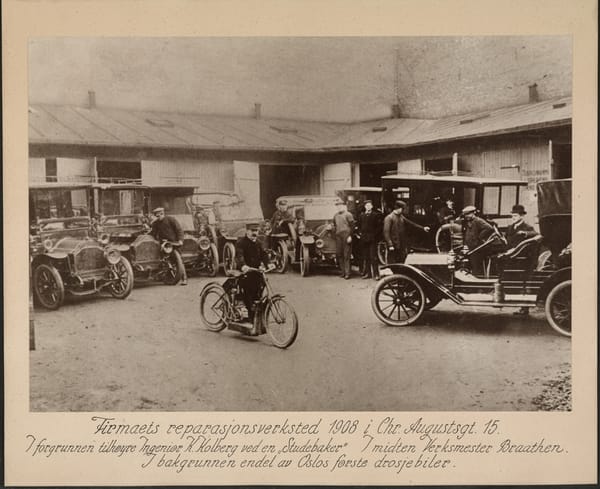 Firmaets reparasjonsverksted 1908 i Chr. Augustsgt. 15.
I forgrunnen tilhøyre Ingeniør K. Kolberg ved en „Studebaker" I midten Verksmester Braathen.
I bakgrunnen endel av Oslos første drosjebiler.